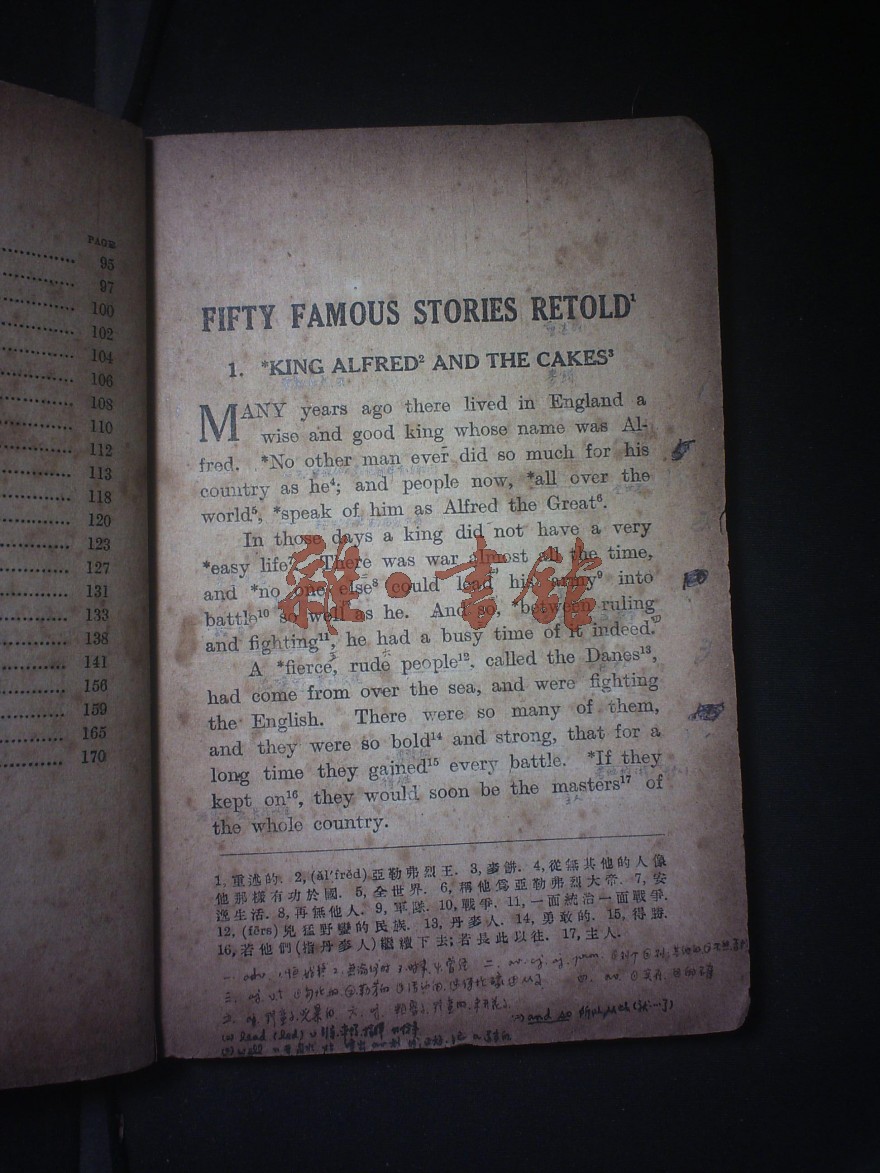 PAGE
95
97
100
102
104
106
108
110
112
113
118
120
123
127
131
133
138
141
156
159
165
170
FIFTY FAMOUS STORIES RETOLD¹
1. *KING ALFRED² AND THE CAKES³
MANY years ago there lived in England a
wise and good king whose name was Al-
fred. *No other man ever did so much for his
country as he⁴; and people now, *all over the
world⁵, *speak of him as Alfred the Great⁶.
In those days a king did not have a very
*easy life⁷. There was war almost all the time,
and *no one else⁸ could lead his army⁹ into
battle¹⁰ so well as he. And so, *between ruling
and fighting¹¹, he had a busy time of it indeed.
A *fierce, rude people¹², called the Danes¹³,
had come from over the sea, and were fighting
the English. There were so many of them,
and they were so bold¹⁴ and strong, that for a
long time they gained¹⁵ every battle. *If they
kept on¹⁶, they would soon be the masters¹⁷ of
the whole country.
1, 重述的. 2, (ăl'frĕd) 亞勒弗烈王. 3, 麥餅. 4, 從無其他的人像
他那樣有功於國. 5, 全世界. 6, 稱他爲亞勒弗烈大帝. 7, 安
逸生活. 8, 再無他人. 9, 軍隊. 10, 戰爭. 11, 一面統治一面戰爭.
12, (fērs) 兇猛野蠻的民族. 13, 丹麥人. 14, 勇敢的. 15, 得勝.
16, 若他們(指丹麥人)繼續下去; 若長此以往. 17, 主人.
lead (led)
and so
雜·書館